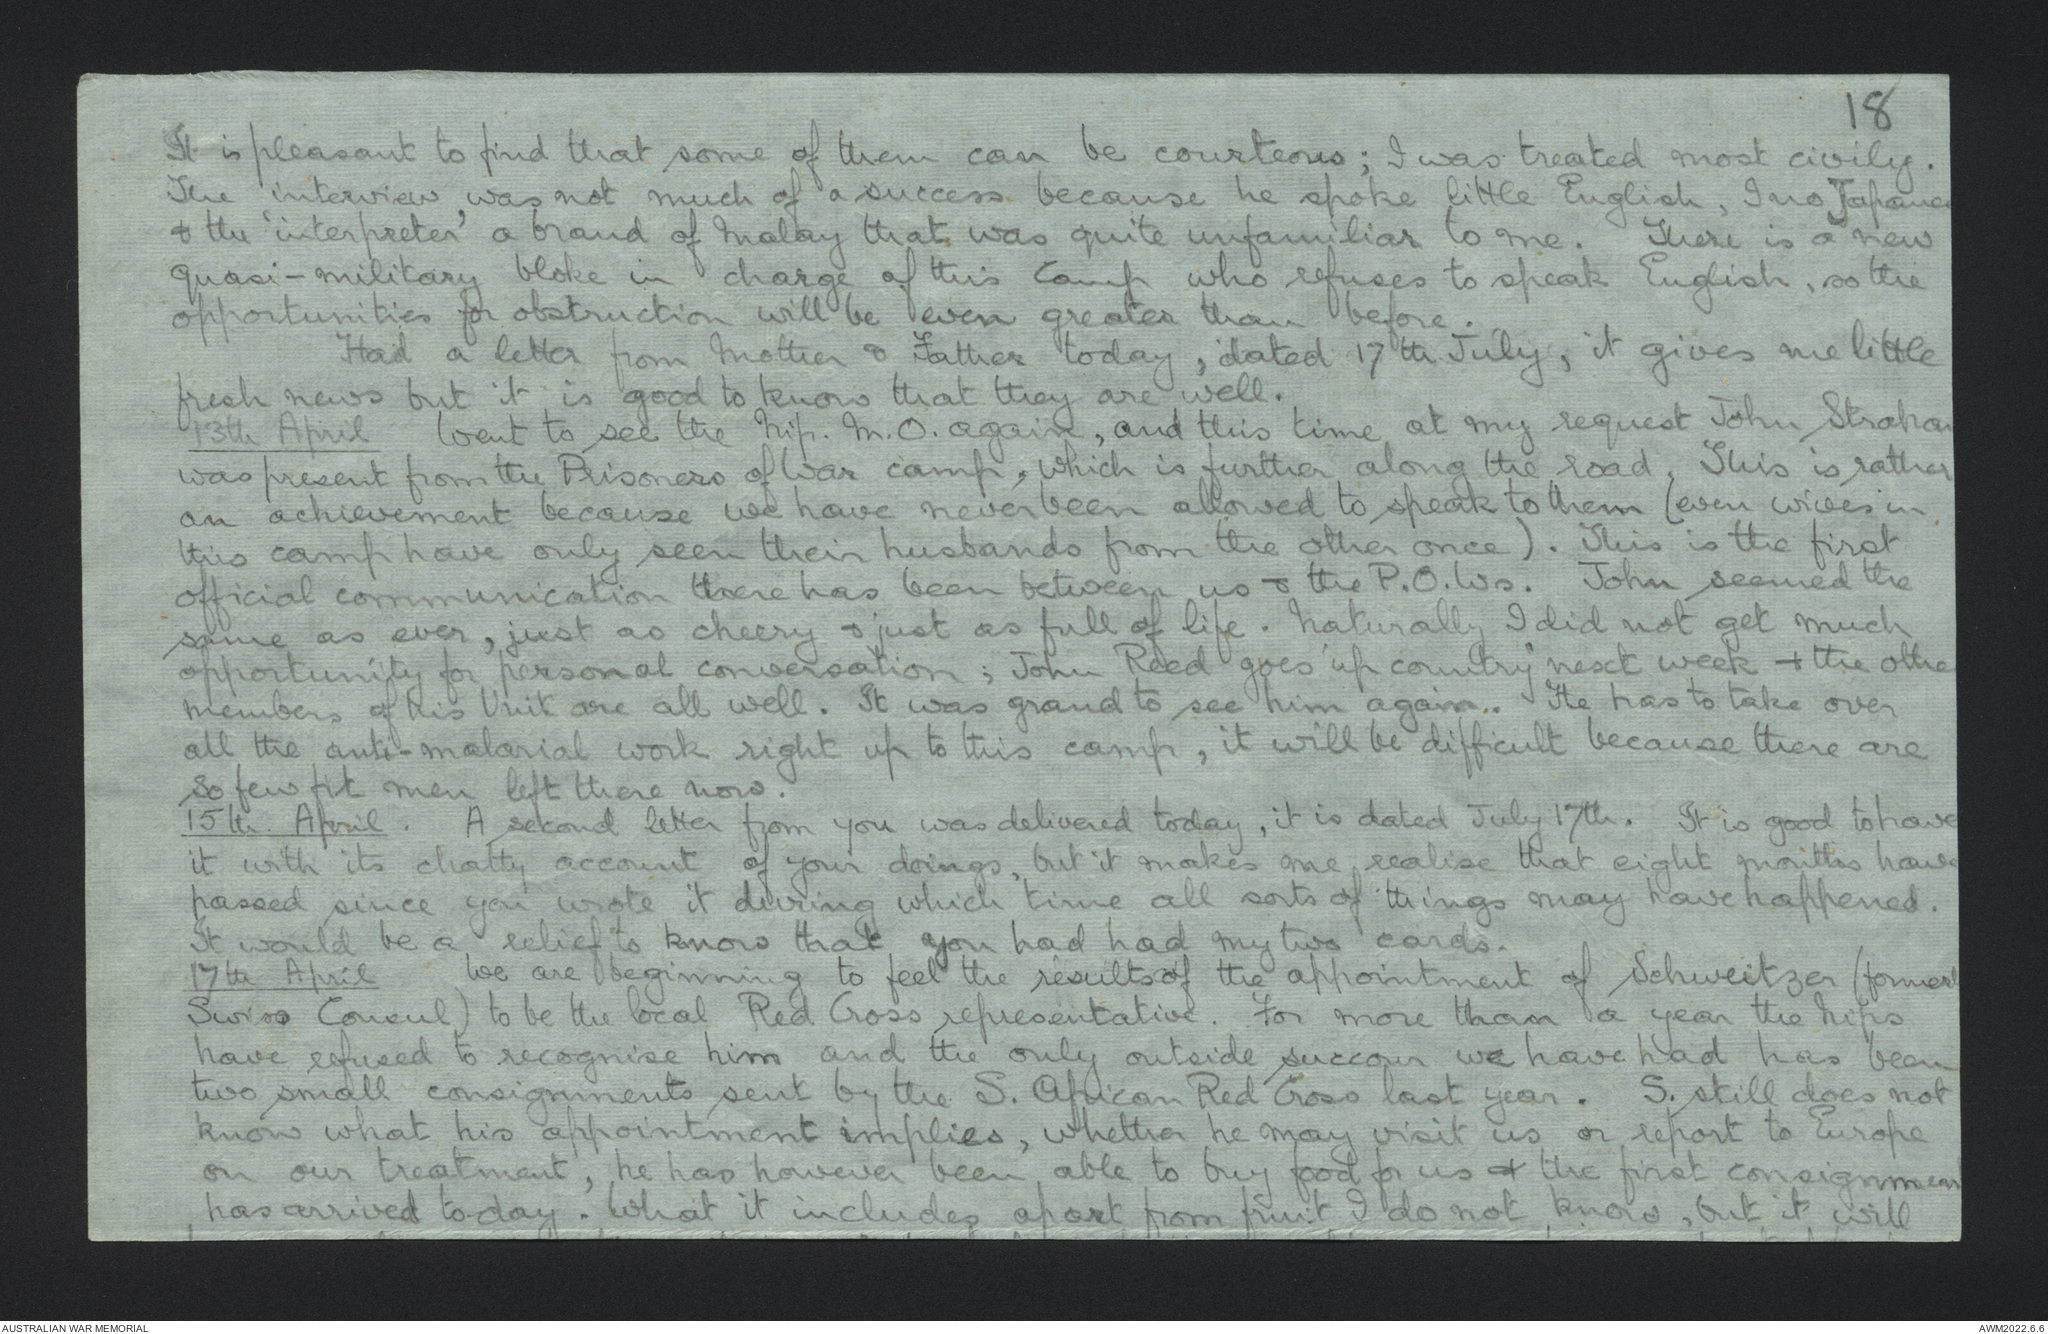 18
It is pleasant to find that some of them can be courteous; I was treated most civily.
The 'interview' was not much of a success because he spoke little English, I no Japane
& the 'interpreter' a brand of Malay that was quite unfamiliar to me. There is a new
quasi-military bloke in charge of this Camp who refuses to speak English, so the
opportunities for obstruction will be even greater than before.
Had a letter from Mother & Father today, dated 17th July, it gives me little
fresh news but it is good to know that they are well.
13th April Went to see the Nip. M.O. again, and this time at my request John Strahan
was present from the Prisoners of War camp, which is further along the road. This is rather
an achievement because we have never been allowed to speak to them (even wives in
this camp have only seen their husbands from the other once). This is the first
official communication there has been between us & the P.O.Ws. John seemed the
same as ever, just as cheery & just as full of life. Naturally I did not get much
opportunity for personal conversation; John Reed goes 'up country' next week & the othe
members of his Unit are all well. It was grand to see him again. He has to take over
all the anti-malarial work right up to this camp, it will be difficult because there are
so few fit men left there now.
15th April. A second letter from you was delivered today, it is dated July 17th. It is good to have
it with its chatty account of your doings, but it makes me realise that eight months have
passed since you wrote it during which time all sorts of things may have happened.
It would be a relief to know that you had had my two cards.
17th April We are beginning to feel the results of the appointment of Schweitzer (former
Swiss Consul) to be the local Red Cross representative. For more than a year the Nips
have refused to recognise him and the only outside succour we have had has been
two small consignments sent by the S. African Red Cross last year. S. still does not
know what his appointment implies, whether he may visit us or report to Europe
on our treatment, he has however been able to buy food for us & the first consignmen
has arrived to-day. What it includes apart from fruit I do not know, but it will
AUSTRALIAN WAR MEMORIAL
AWM2022.6.6